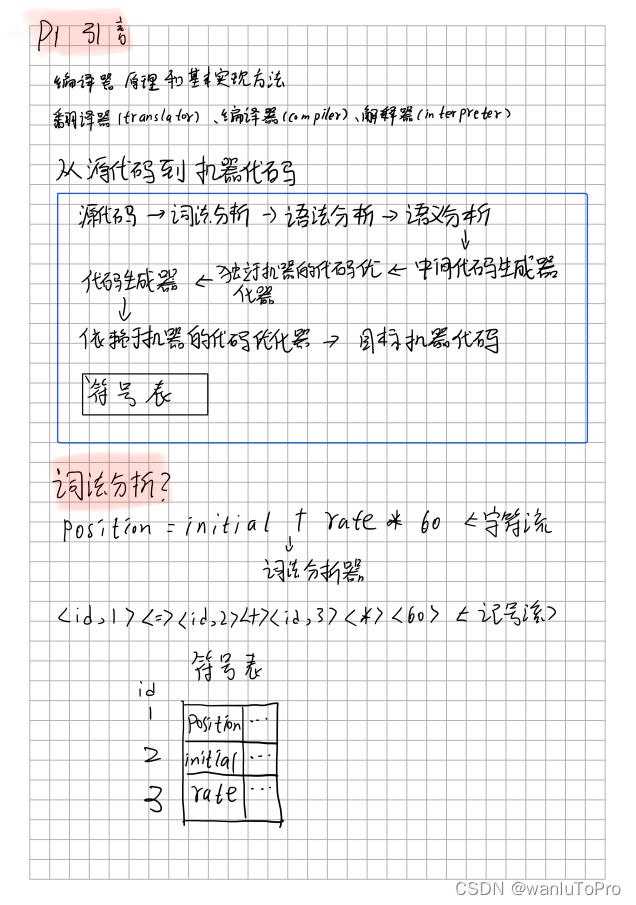 P1 引言
编译器 原理和基本实现方法
翻译器(translator)、编译器(compiler)、解释器(interpreter)
从源代码到机器代码
源代码 → 词法分析 → 语法分析 → 语义分析
↓
代码生成器 ← 独立于机器的代码优化器 ← 中间代码生成器
↓
依赖于机器的代码优化器 → 目标机器代码
符号表
词法分析?
position = initial + rate * 60 ← 字符流
↓
词法分析器
<id,1><=><id,2><+><id,3><*><60> ← 记号流
符号表
id
1 position ...
2 initial ...
3 rate ...
CSDN @wanluToPro